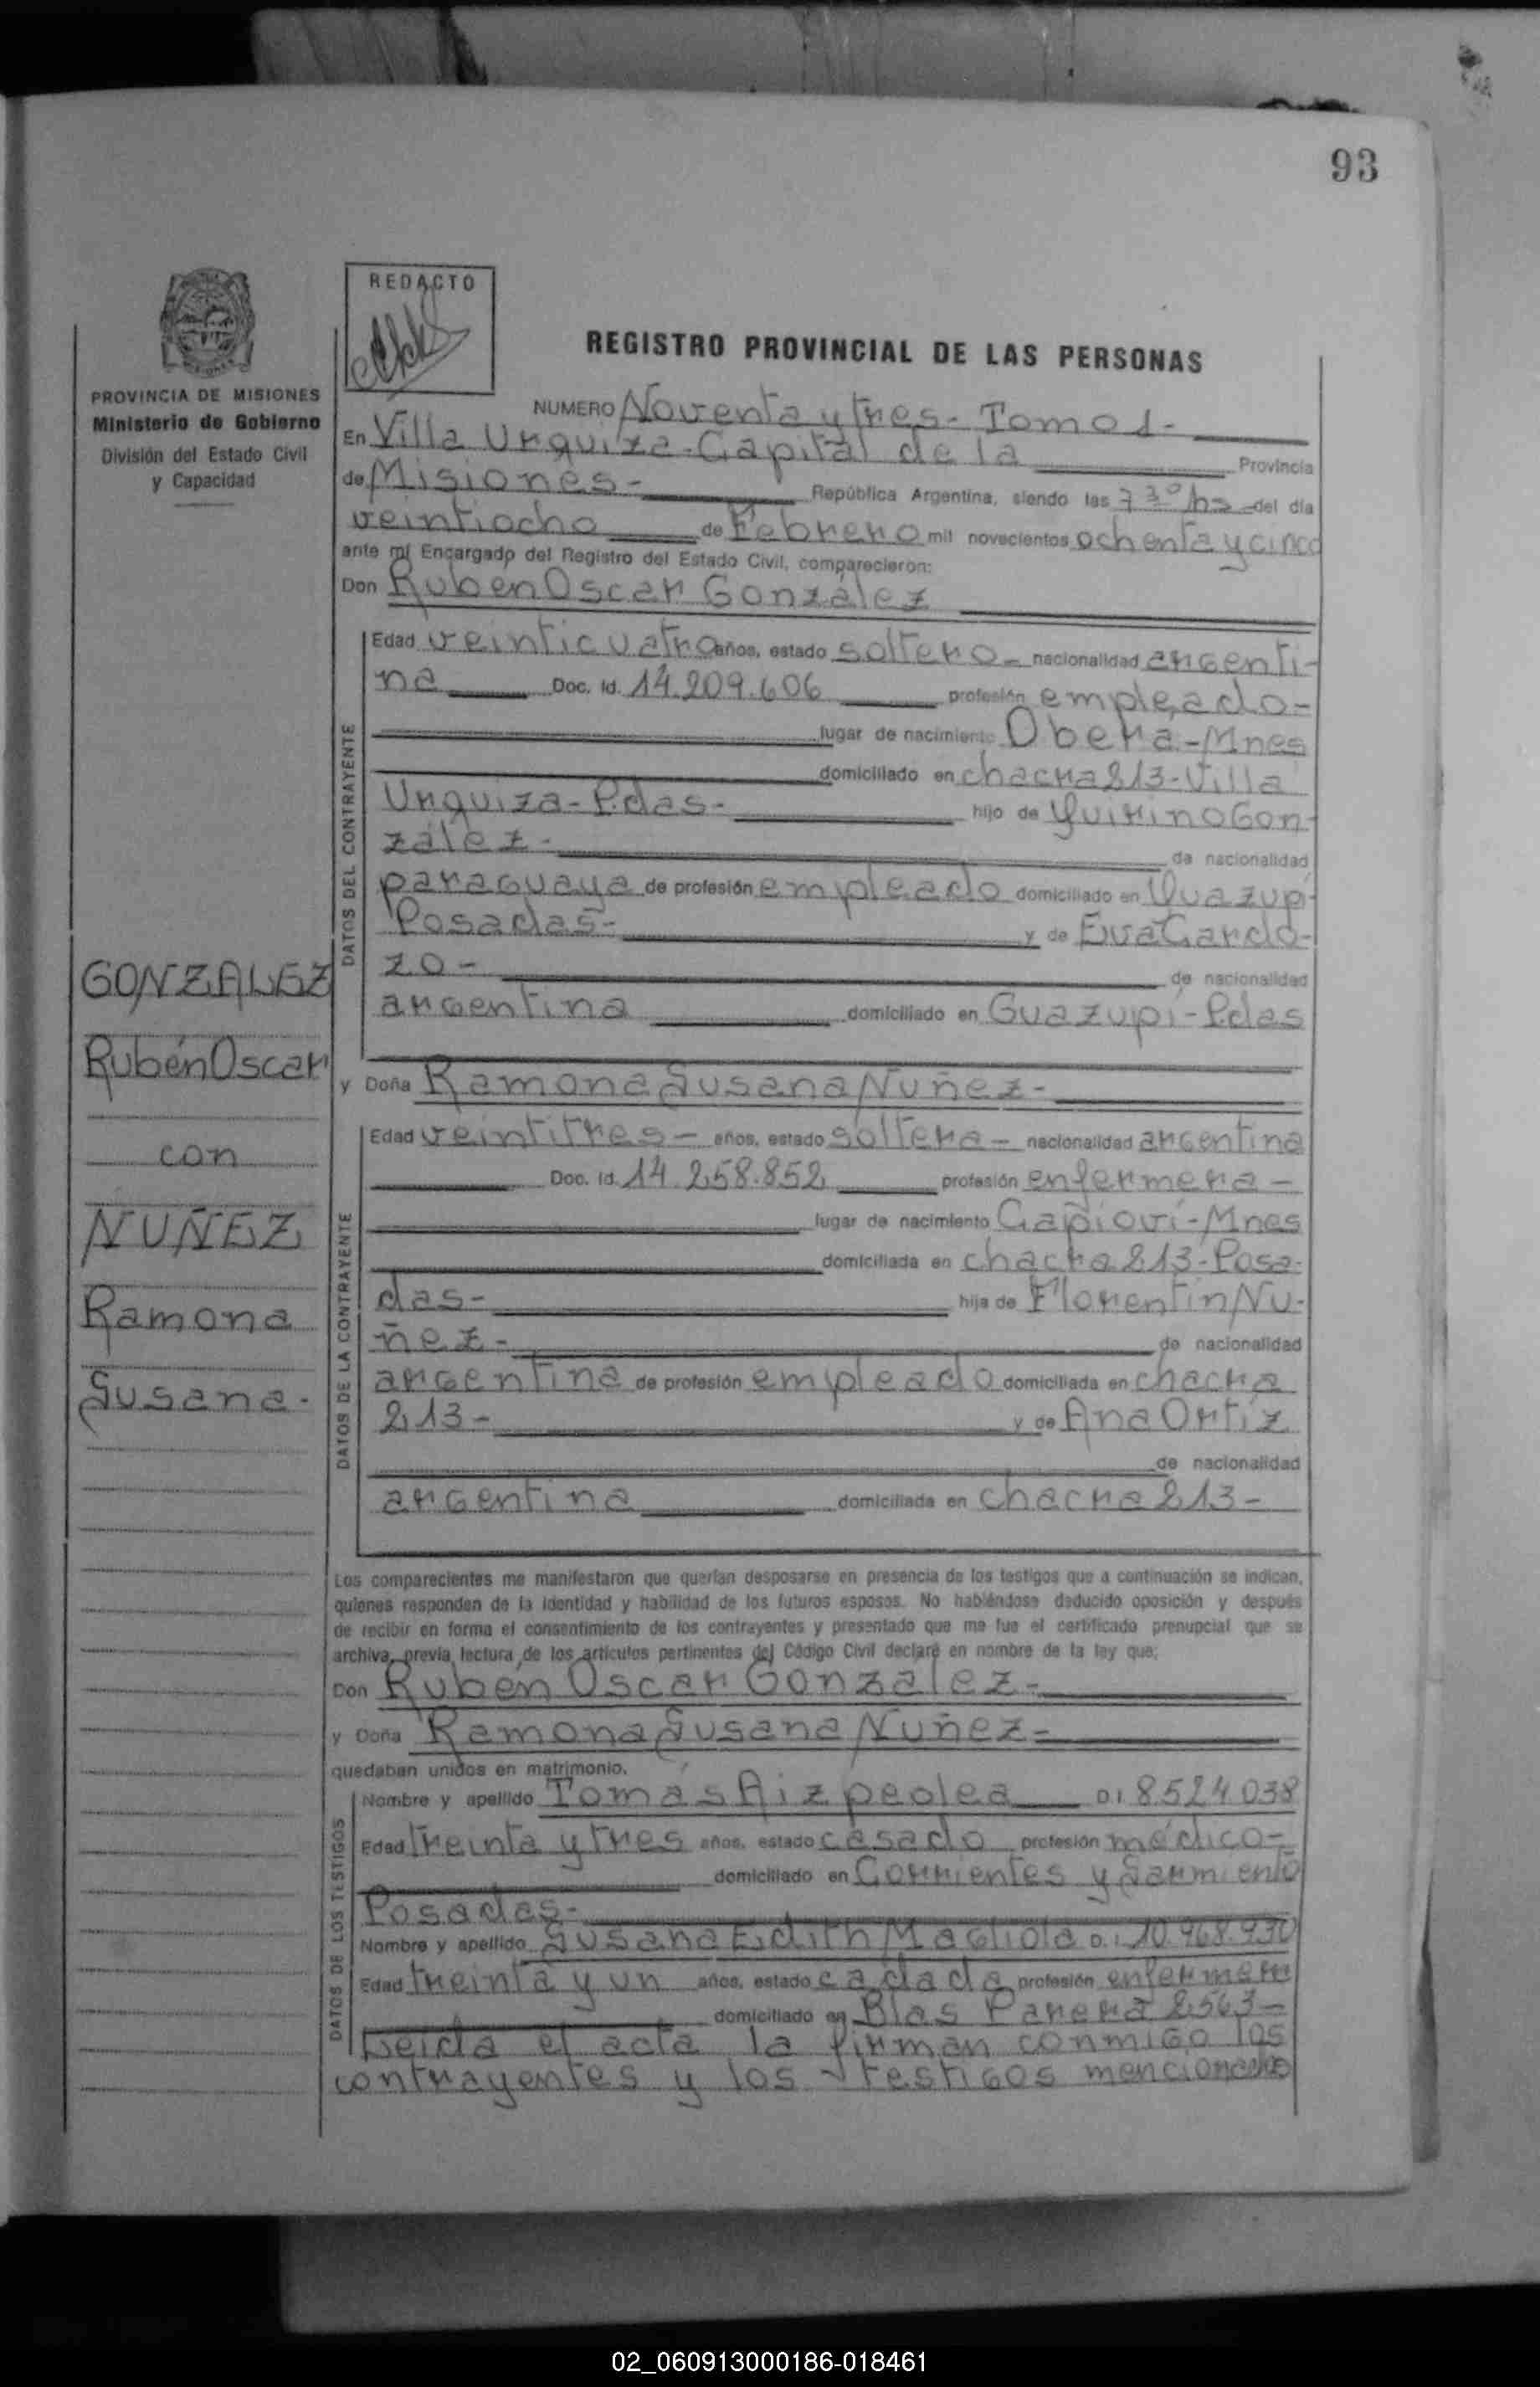 93
REDACTO
REGISTRO PROVINCIAL DE LAS PERSONAS
PROVINCIA DE MISIONES
Ministerio de Gobierno
División del Estado Civil
y Capacidad
NUMERO Noventa y tres - Tomo 1 -
En Villa Urquiza - Capital de la Provincia
de Misiones - República Argentina, siendo las 7 30 hs del día
veintiocho de Febrero mil novecientos ochenta y cinco
ante mí Encargado del Registro del Estado Civil, comparecieron:
Don Ruben Oscar González
DATOS DEL CONTRAYENTE
Edad veinticuatro años, estado soltero - nacionalidad argenti-
na Doc. Id. 14.209.606 profesión empleado -
lugar de nacimiento Obera - Mnes
domiciliado en chacra 213 - Villa
Urquiza - Pdas - hijo de Quirino Gon-
zález - de nacionalidad
paraguaya de profesión empleado domiciliado en Guazupi-
Posadas - y de Eva Cardo-
zo - de nacionalidad
argentina domiciliado en Guazupi - Pdas
GONZALEZ
Rubén Oscar
con
NUÑEZ
Ramona
Susana -
y Doña Ramona Susana Nuñez -
DATOS DE LA CONTRAYENTE
Edad veintitres - años, estado soltera - nacionalidad argentina
Doc. Id. 14.258.852 profesión enfermera -
lugar de nacimiento Capioví - Mnes
domiciliada en chacra 213 - Posa-
das - hija de Florentin Nu-
ñez - de nacionalidad
argentina de profesión empleado domiciliada en chacra
213 - y de Ana Ortíz
de nacionalidad
argentina domiciliada en chacra 213 -
Los comparecientes me manifestaron que querían desposarse en presencia de los testigos que a continuación se indican,
quienes responden de la identidad y habilidad de los futuros esposos. No habiéndose deducido oposición y después
de recibir en forma el consentimiento de los contrayentes y presentado que me fue el certificado prenupcial que se
archiva, previa lectura de los artículos pertinentes del Código Civil declaré en nombre de la ley que;
Don Rubén Oscar Gonzalez -
y Doña Ramona Susana Nuñez -
quedaban unidos en matrimonio.
DATOS DE LOS TESTIGOS
Nombre y apellido Tomás Aizpeolea D.I 8524.038
Edad treinta y tres años, estado casado profesión médico -
domiciliado en Corrientes y Sarmiento
Posadas -
Nombre y apellido Susana Edith D.I 10.968.930
Edad treinta y un años, estado cadada profesión enfermera
domiciliado en Blas Parera 2563 -
Leida el acta la firman conmigo los
contrayentes y los testigos mencionados
02_060913000186-018461